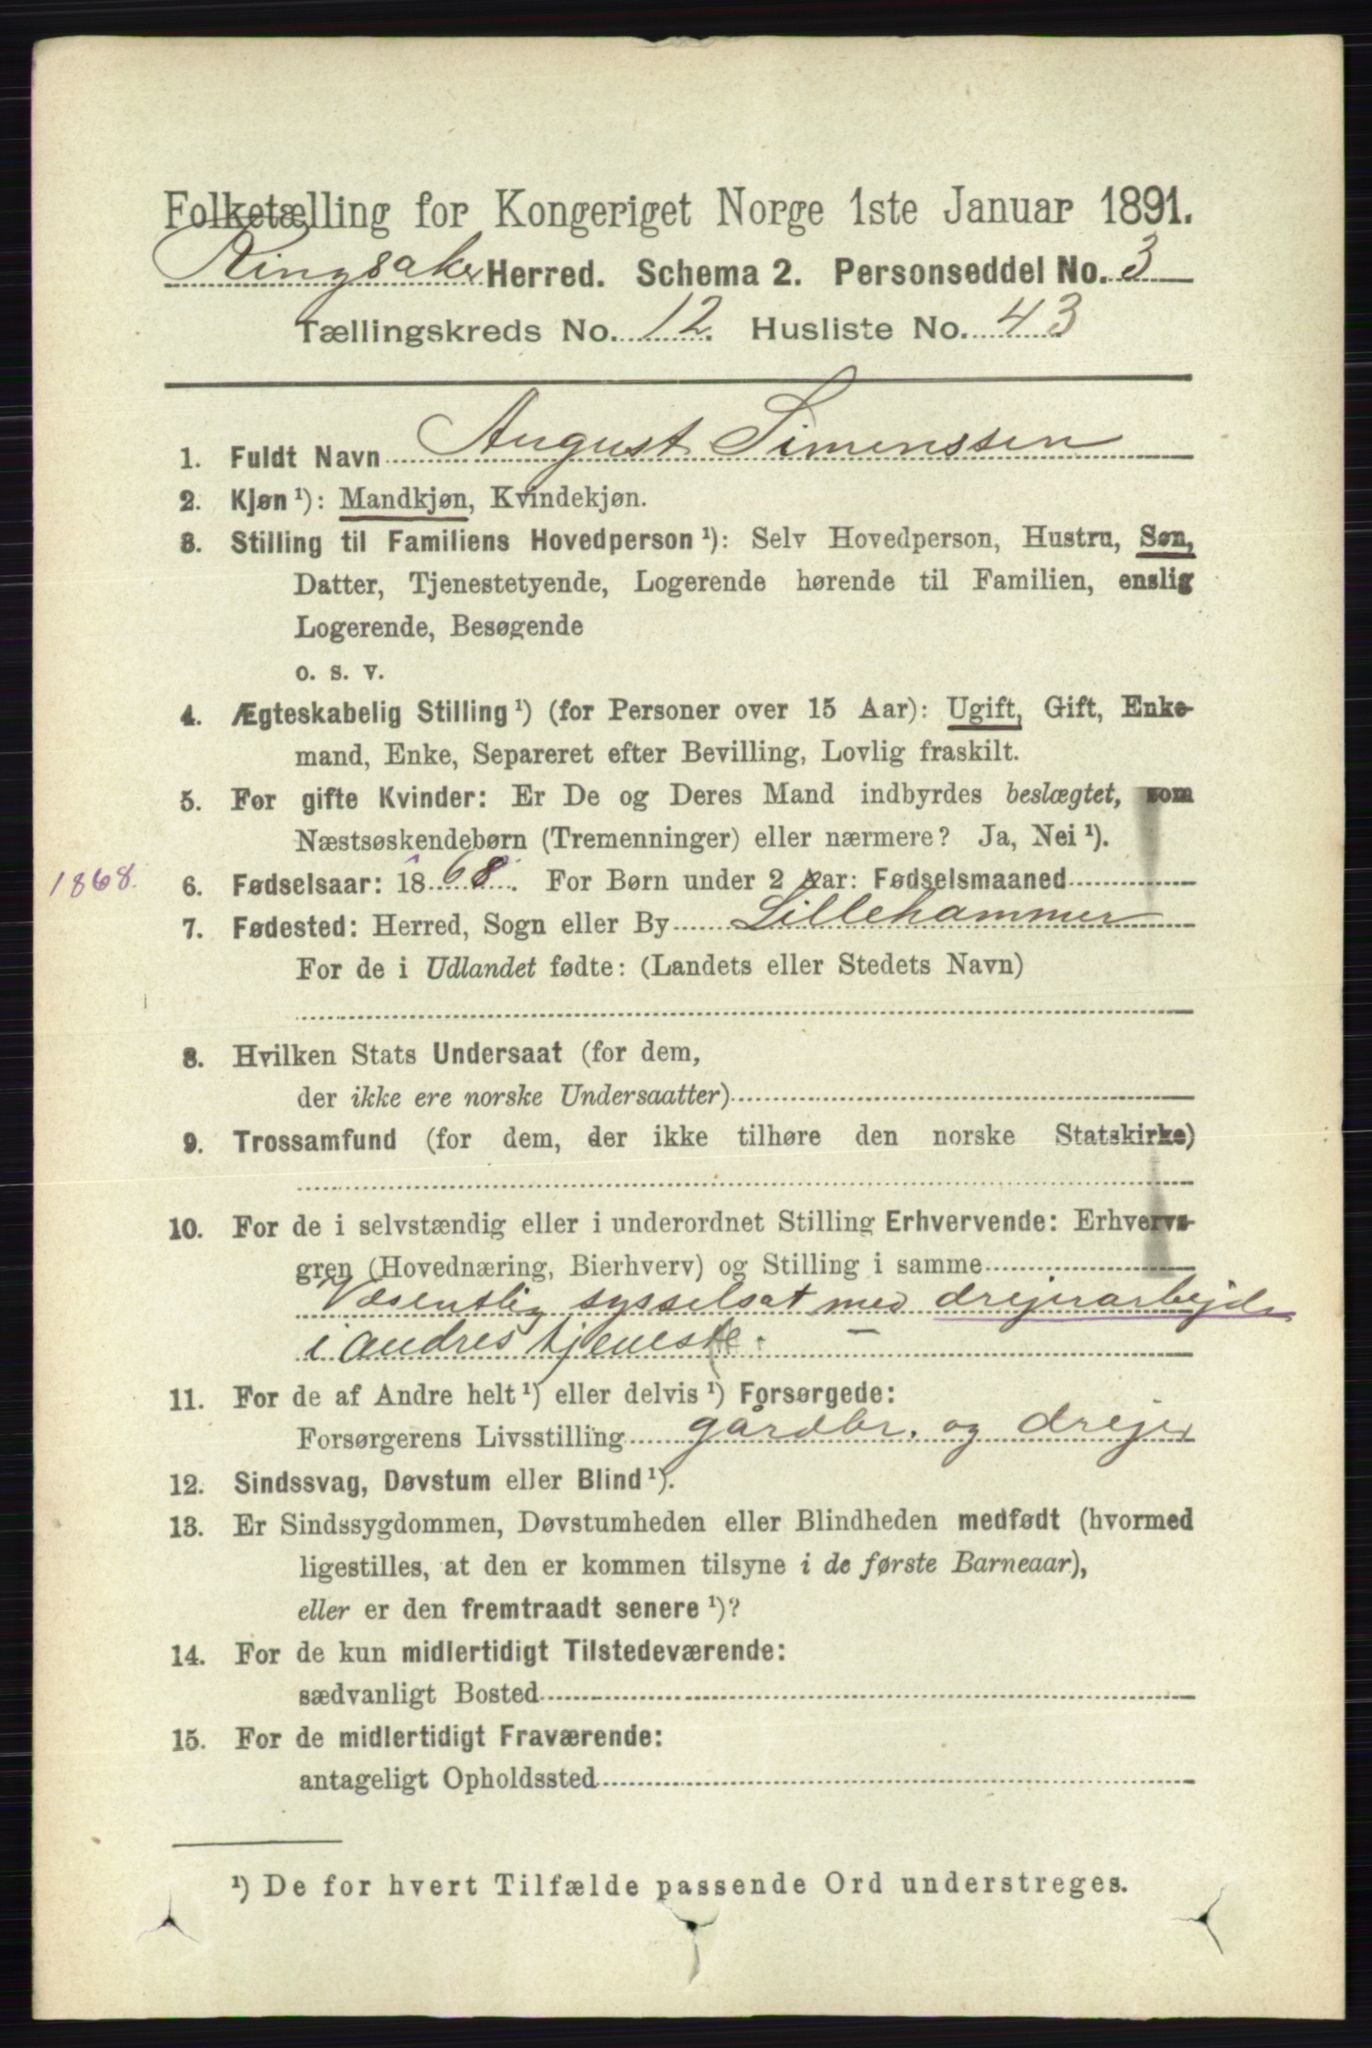 Folketælling for Kongeriget Norge 1ste Januar 1891.
Ringsaker Herred. Schema 2. Personseddel No. 3
Tællingskreds No. 12. Husliste No. 43
1. Fuldt Navn August Simenssen
2. Kjøn ¹): Mandkjøn, Kvindekjøn.
3. Stilling til Familiens Hovedperson ¹): Selv Hovedperson, Hustru, Søn,
Datter, Tjenestetyende, Logerende hørende til Familien, enslig
Logerende, Besøgende
o. s. v.
4. Ægteskabelig Stilling ¹) (for Personer over 15 Aar): Ugift, Gift, Enke-
mand, Enke, Separeret efter Bevilling, Lovlig fraskilt.
5. For gifte Kvinder: Er De og Deres Mand indbyrdes beslægtet, som
Næstsøskendebørn (Tremenninger) eller nærmere? Ja, Nei ¹).
1868. 6. Fødselsaar: 1868. For Børn under 2 Aar: Fødselsmaaned
7. Fødested: Herred, Sogn eller By Lillehammer
For de i Udlandet fødte: (Landets eller Stedets Navn)
8. Hvilken Stats Undersaat (for dem,
der ikke ere norske Undersaatter)
9. Trossamfund (for dem, der ikke tilhøre den norske Statskirke)
10. For de i selvstændig eller i underordnet Stilling Erhvervende: Erhvervs-
gren (Hovednæring, Bierhverv) og Stilling i samme
Væsentlig sysselsat med drejerarbejde
i andres tjeneste. —
11. For de af Andre helt ¹) eller delvis ¹) Forsørgede:
Forsørgerens Livsstilling gårdbr. og drejer
12. Sindssvag, Døvstum eller Blind ¹).
13. Er Sindssygdommen, Døvstumheden eller Blindheden medfødt (hvormed
ligestilles, at den er kommen tilsyne i de første Barneaar),
eller er den fremtraadt senere ¹)?
14. For de kun midlertidigt Tilstedeværende:
sædvanligt Bosted
15. For de midlertidigt Fraværende:
antageligt Opholdssted
¹) De for hvert Tilfælde passende Ord understreges.